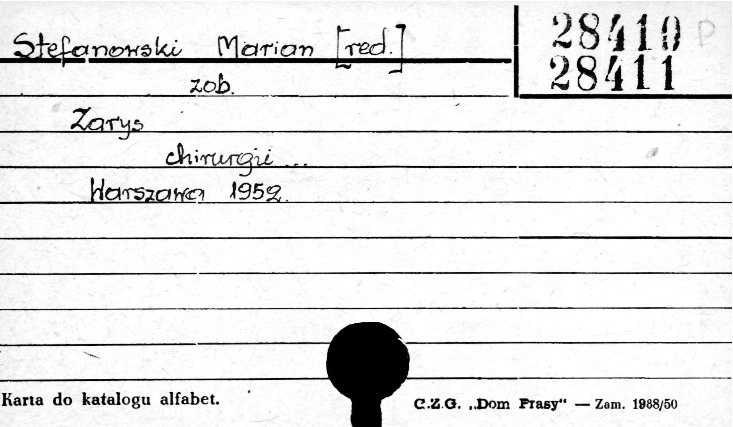 Stefanowski Marian [red.]
28410 P
28411
zob.
Zarys
chirurgii ...
Warszawa 1952.
Karta do katalogu alfabet.
C.Z.G. „Dom Prasy“ — Zam. 1988/50